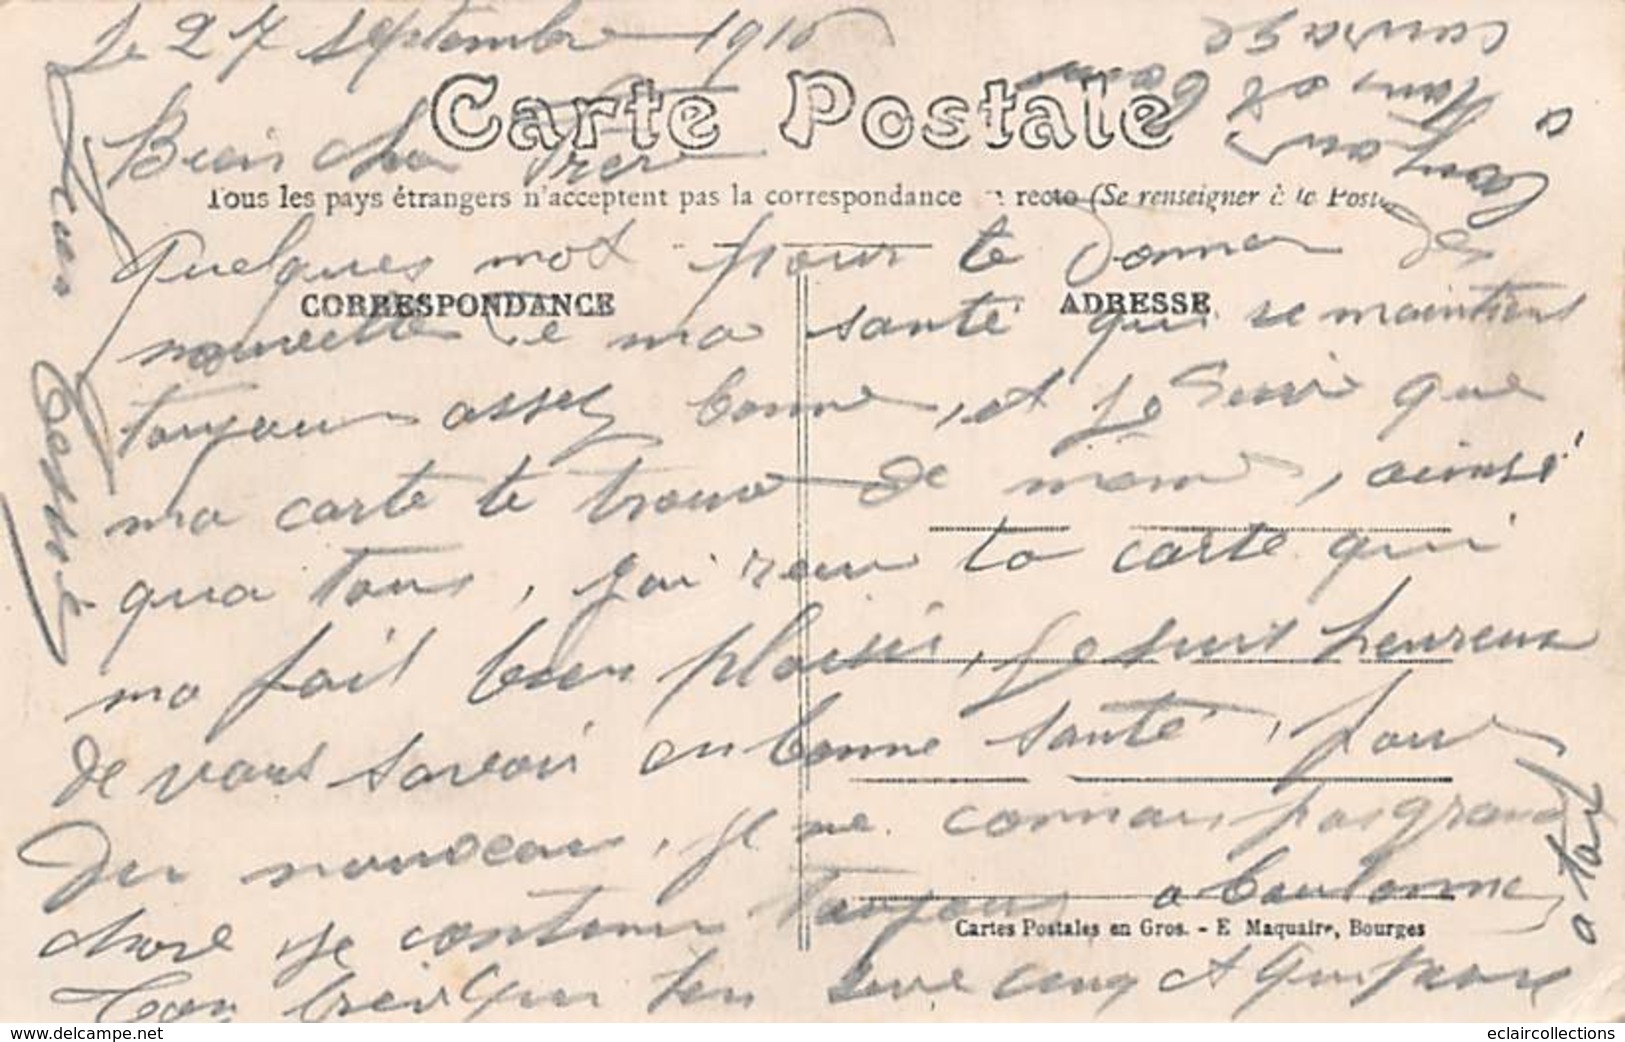 Le 27 Septembre 1916
Carte Postale
Bien cher Frere
Tous les pays étrangers n'acceptent pas la correspondance au recto (Se renseigner à la Poste
Quelques mot pour te donner des
CORRESPONDANCE
ADRESSE
nouvelle de ma santé qui se maintiens
toujours assez bonne, et je que
ma carte te trouve de même, ainsi
qua tous, j'ai recu ta carte qui
ma fait bien plaisir, je suis heureux
de vous savoir en bonne santé, pour
du nouveau, je ne connais pas grand
chose je continue toujours a
Cartes Postales en Gros. - E. Maquaire, Bourges
Ton frere qui ten serre cinq et qui pense
a toi
toujours
courage